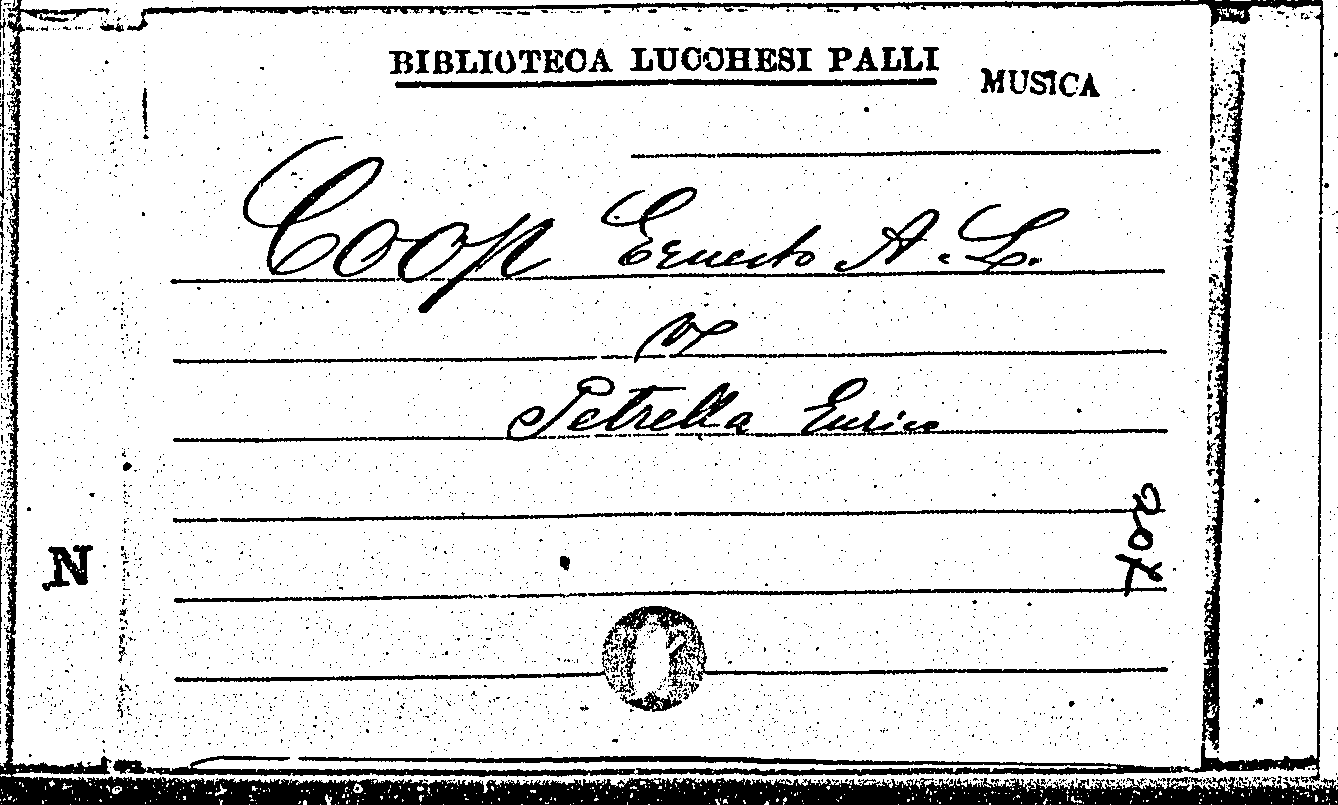 BIBLIOTECA LUCCHESI PALLI
MUSICA
Coop Ernesto A. L.
Petrella Enrico
N